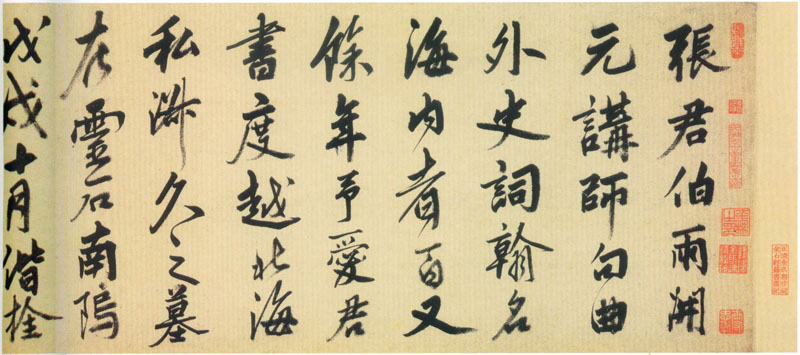 張君伯雨開
元講師句曲
外史詞翰名
海内者百又
餘年予愛君
書度越北海
私淑久之墓
在靈石南塢
戊戌十月偕栓